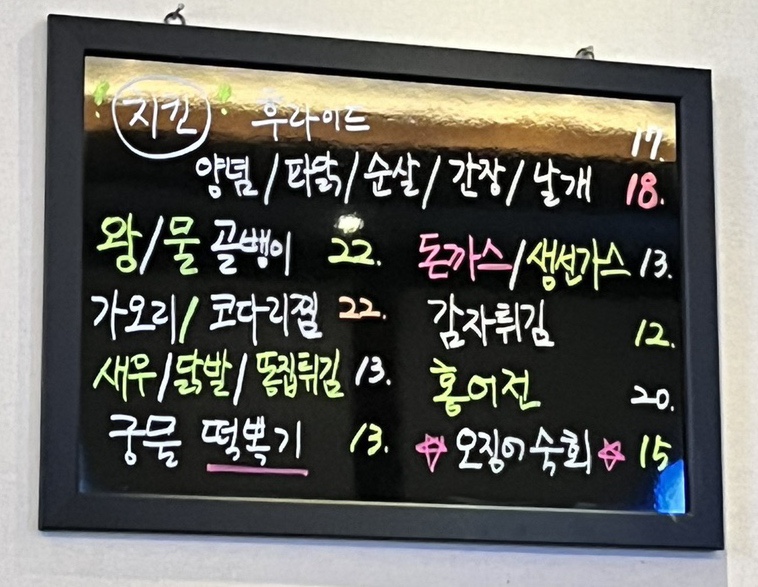 치킨 후라이드 17.
양념/파닭/순살/간장/날개 18.
왕/물 골뱅이 22.
가오리/코다리찜 22.
새우/닭발/똥집튀김 13.
궁물 떡볶기 13.
돈가스/생선가스 13.
감자튀김 12.
홍어전 20.
☆오징어 숙회☆ 15